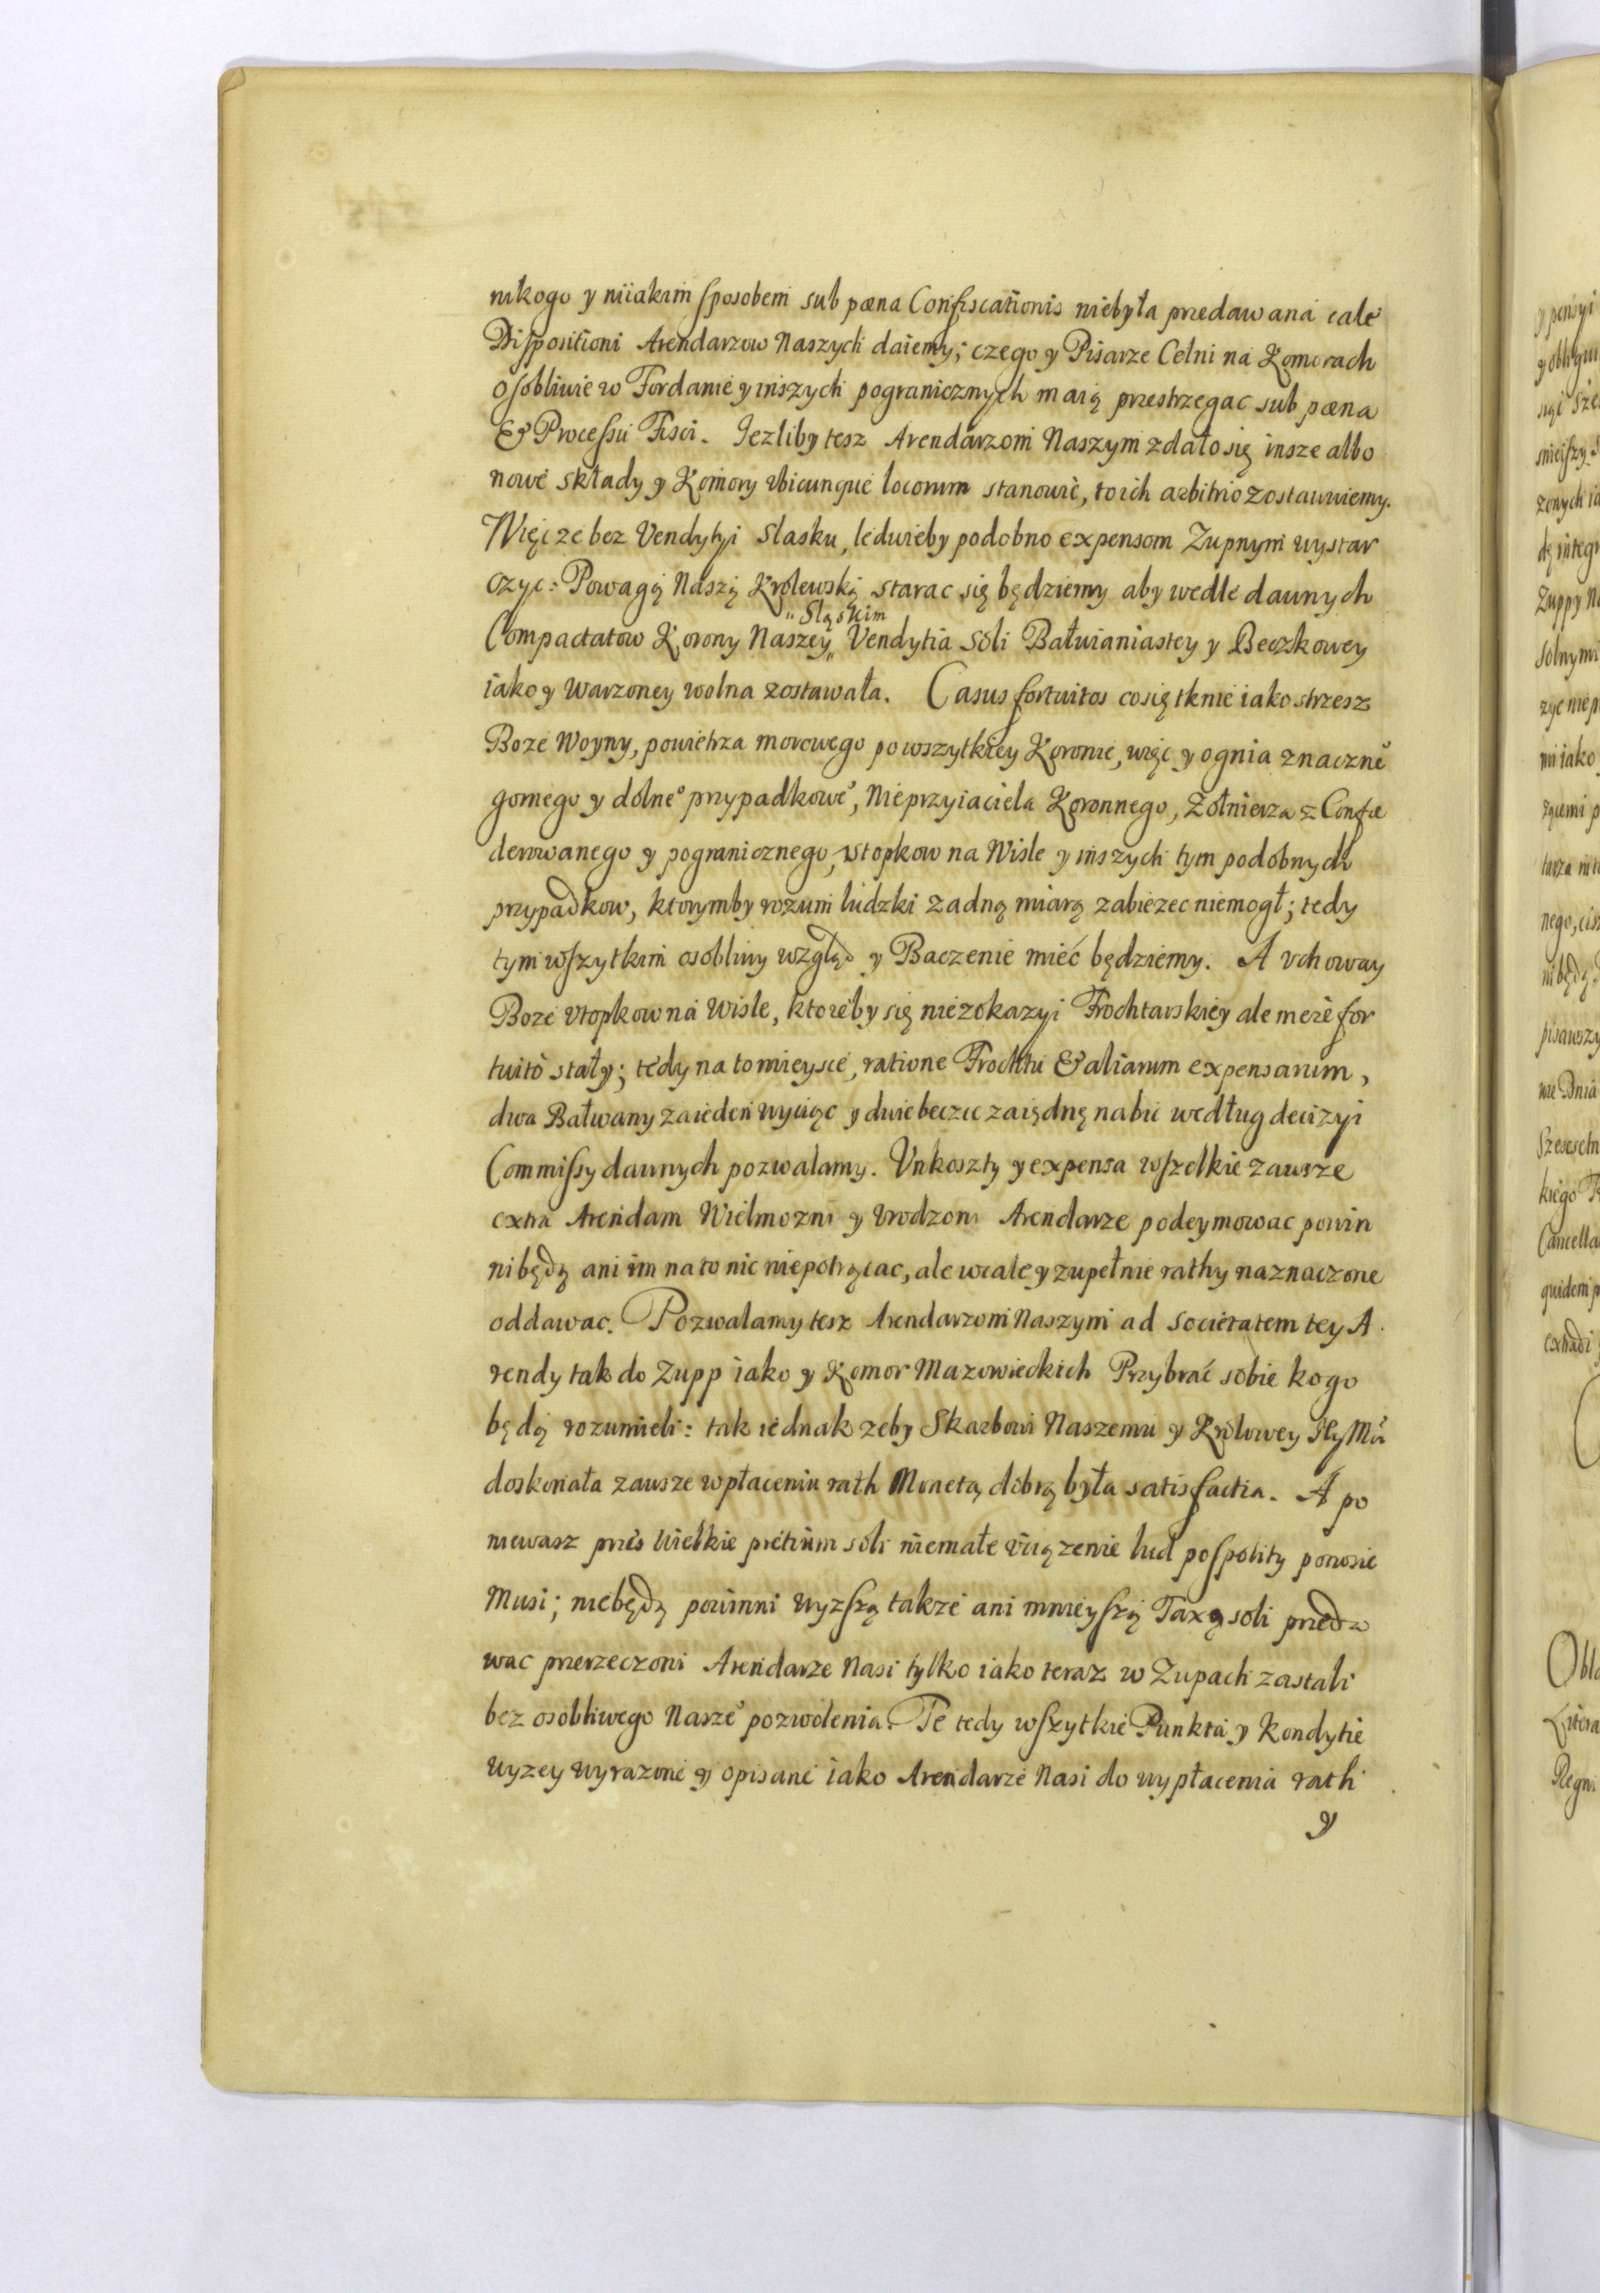 nikogo y niiakim sposobem sub pœna Confiscationis niebyła przedawana cale
Dispositioni Arendarzow Naszych daiemy; czego y Pisarze Celni na Komorach
osobliwie w Fordanie y inszych pogranicznych maią przestrzegac sub pœna
& Processu Fisci. Iezliby tesz Arendarzom Naszym zdało się insze albo
nowe składy y Komory vbicunque locorum stanowic, to ich arbitrio zostawuiemy.
Więc ze bez Vendytyi Slasku, ledwieby podobno expensom Zupnym wystar
czyc: Powagą Naszą Krolewską starac się będziemy aby wedle dawnych
" Sląskim
Compactatow Korony Naszey " Vendytia Soli Bałwianiastey y Beczkowey
iako y Warzoney wolna zostawała. Casus fortuitos co się tknie iako strzesz
Boze Woyny, powietrza morowego po wszytkiey Koronie, więc y ognia znaczne°
gornego y dolne° przypadkowe°, Nieprzyiaciela Koronnego, Zołnierza z Confœ
derowanego y pogranicznego, Vtopkow na Wisle y inszych tym podobnych
przypadkow, ktorymby rozum ludzki zadną miarą zabiezec niemogł; tedy
tym wszytkim osobliwy wzgląd y Baczenie mieć będziemy. A vchoway
Boze Vtopkow na Wisle, ktoreby się nie z okazyi Frochtarskiey ale mere for
tuito stały; tedy na to mieysce, ratione Frochtu & aliarum expensarum,
dwa Bałwany za ieden wyciąc y dwie beczce za iędnę nabic według decizyi
Commissy dawnych pozwalamy. Vnkoszty y expensa wszelkie zawsze
extra Arendam Wielmozni y Vrodzoni Arendarze podeymowac powin
ni będą ani im na to nic niepotrącac, ale wcale y zupełnie rathy naznaczone
oddawac. Pozwalamy tesz Arendarzom Naszym ad Societatem tey A
rendy tak do Zupp iako y Komor Mazowieckich Przybrać sobie kogo
będą rozumieli: tak iednak zeby Skarbowi Naszemu y Krolowey Iey Mci
doskonała zawsze w płaceniu rath Monetą dobrą była satisfactia. A po
niewasz przes wielkie pretium soli niemałe vciązenie lud pospolity ponosic
Musi; niebędą powinni wyzszą takze ani mnieyszą Taxą soli przeda
wac przerzeczoni Arendarze Nasi tylko iako teraz w Zupach zastali
bez osobliwego Nasze° pozwolenia. Te tedy wszytkie Punkta y Kondytie
wyzey wyrazone y opisane iako Arendarze Nasi do wypłacenia rath
y